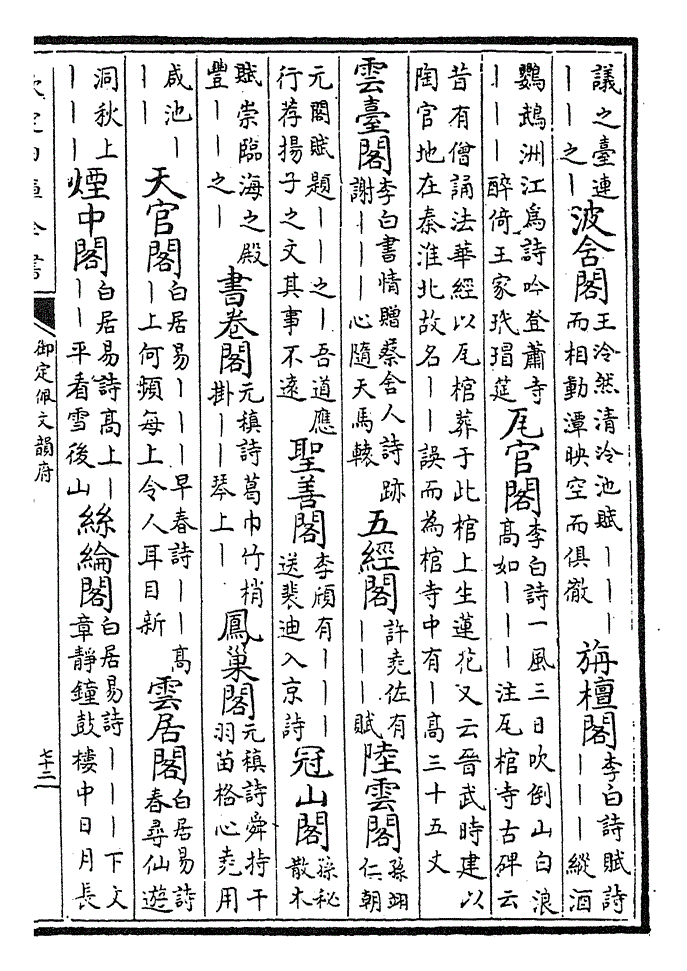 議之臺連
｜｜之｜
波舍閣
王泠然清泠池賦｜｜｜
而相動潭映空而俱徹
旃檀閣
李白詩賦詩
｜｜｜縱酒
鸚鵡洲江為詩吟登蕭寺
｜｜｜醉倚王家玳瑁筵
瓦官閣
李白詩一風三日吹倒山白浪
高如｜｜｜注瓦棺寺古碑云
昔有僧誦法華經以瓦棺葬于此棺上生蓮花又云晉武時建以
陶官地在秦淮北故名｜｜誤而為棺寺中有｜高三十五丈
雲臺閣
李白書情贈蔡舍人詩跡
謝｜｜｜心隨天馬轅
五經閣
許堯佐有
｜｜｜賦
陸雲閣
孫翊
仁朝
元閣賦題｜｜之｜吾道應
行荐揚子之文其事不遠
聖善閣
李頎有｜｜｜
送裴迪入京詩
冠山閣
孫秘
散木
賦崇臨海之殿
豐｜｜之｜
書卷閣
元稹詩葛巾竹梢
掛｜｜琴上｜
鳳巢閣
元稹詩舜持干
羽苗格心堯用
咸池｜
｜｜
天官閣
白居易｜｜｜早春詩｜｜高
｜上何頻每上令人耳目新
雲居閣
白居易詩
春尋仙遊
洞秋上
｜｜｜
煙中閣
白居易詩高上｜
｜｜平看雪後山
絲綸閣
白居易詩｜｜｜下文
章靜鐘鼓樓中日月長
御定佩文韻府
七十二